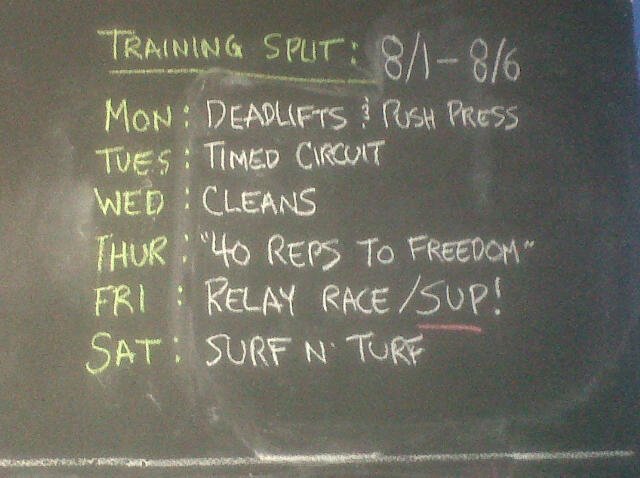 TRAINING SPLIT: 8/1 - 8/6
MON: DEADLIFTS & PUSH PRESS
TUES: TIMED CIRCUIT
WED: CLEANS
THUR: "40 REPS TO FREEDOM"
FRI: RELAY RACE/SUP!
SAT: SURF N' TURF